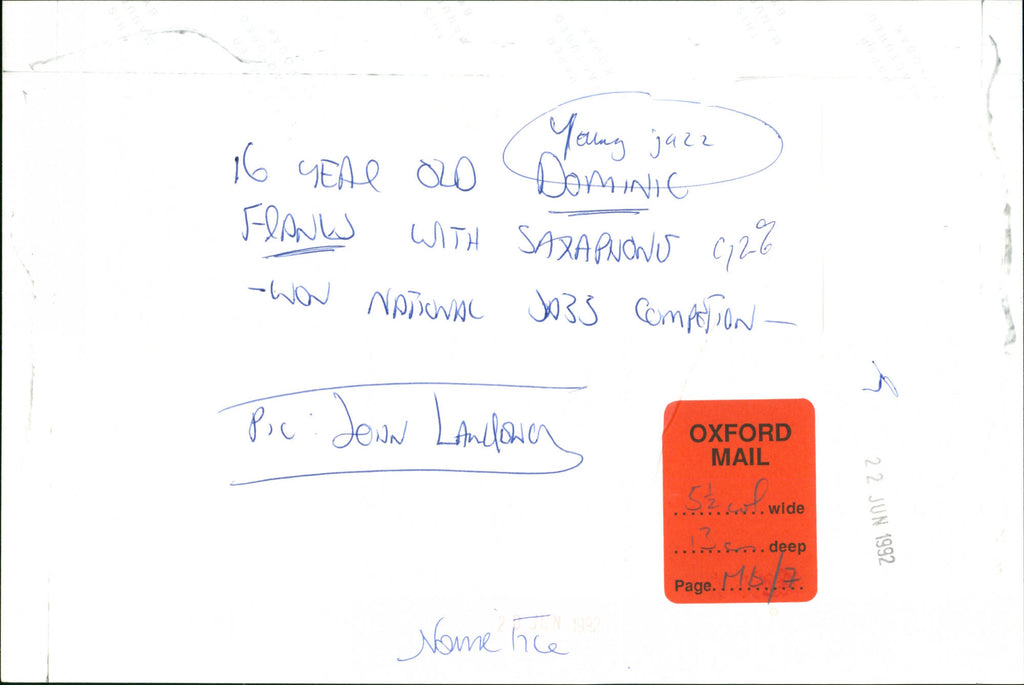 Young jazz
16 YEAR OLD DOMINIC
FRANKS WITH SAXAPHONE
-WON NATIONAL JAZZ COMPETION-
Pic: JOHN LAWRENCE
OXFORD
MAIL
5½ col wide
deep
Page
22 JUN 1992
JUN 1992
Name